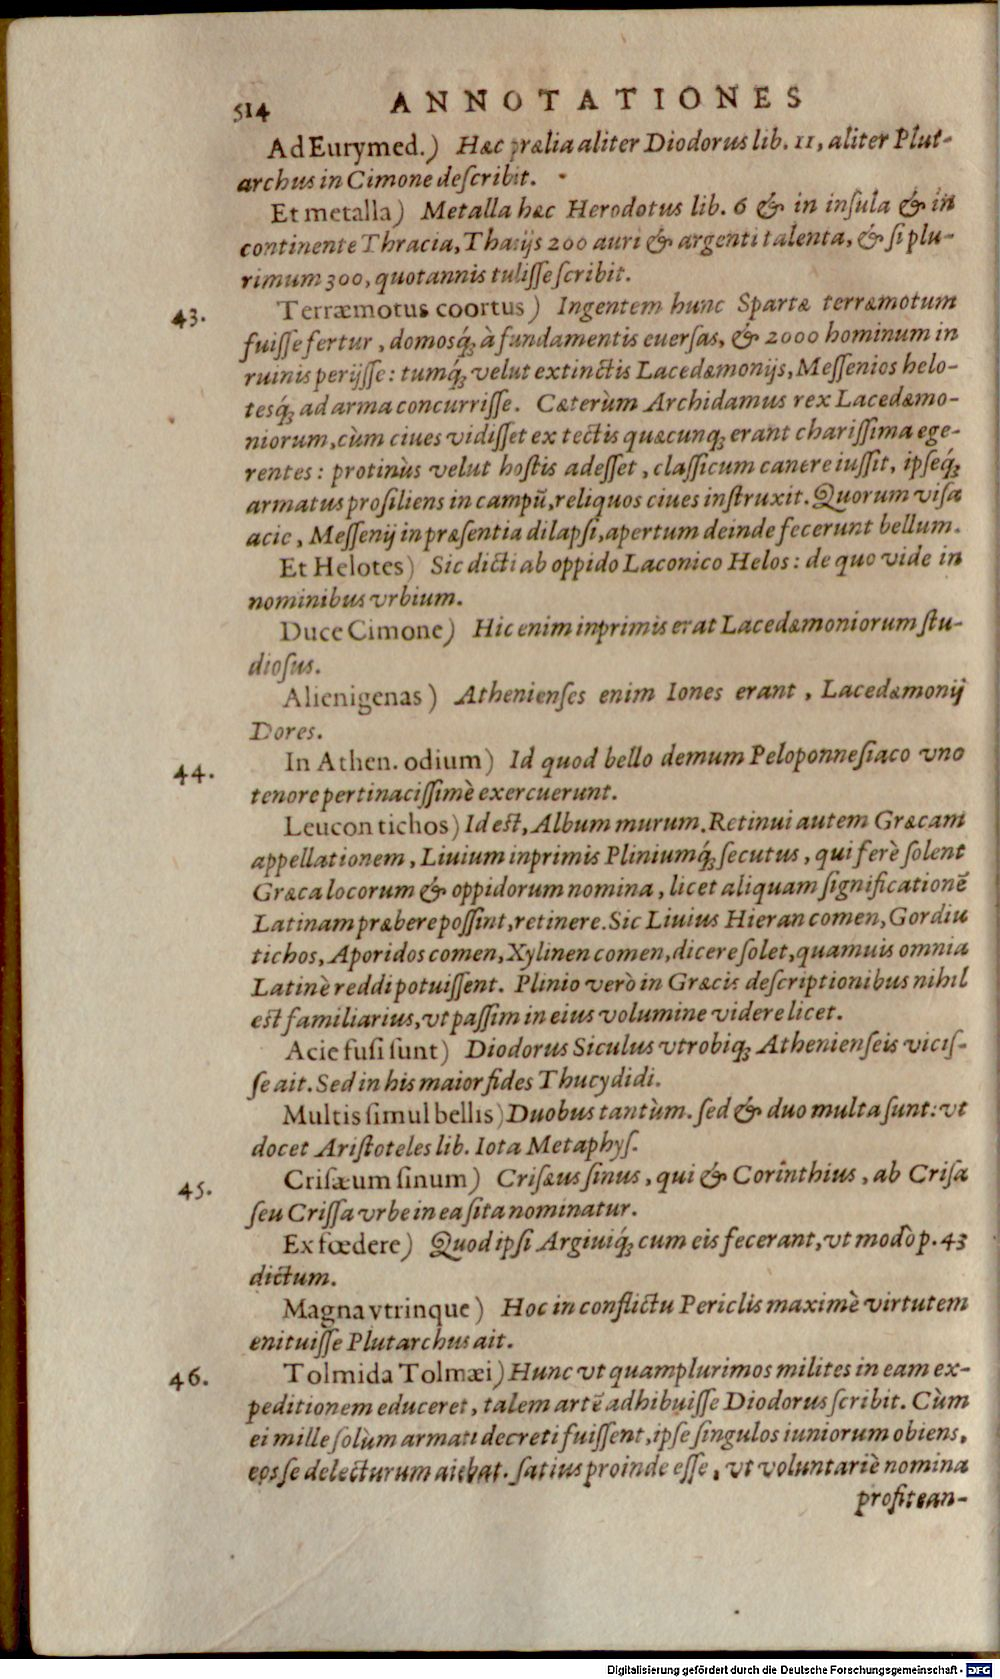 514 ANNOTATIONES
Ad Eurymed.) Hæc prælia aliter Diodorus lib. 11, aliter Plut-
archus in Cimone deſcribit.
Et metalla) Metalla hæc Herodotus lib. 6 & in inſula & in
continente Thracia, Thasijs 200 auri & argenti talenta, & ſi plu-
rimum 300, quotannis tuliſſe ſcribit.
43. Terræmotus coortus) Ingentem hunc Spartæ terræmotum
fuiſſe fertur, domosq́; à fundamentis euerſas, & 2000 hominum in
ruinis perijſſe: tumq́; velut extinctis Lacedæmonijs, Meſſenios helo-
tesq́; ad arma concurriſſe. Cæterùm Archidamus rex Lacedæmo-
niorum, cùm ciues vidiſſet ex tectis quæcunq; erant chariſſima ege-
rentes: protinùs velut hoſtis adeſſet, claſſicum canere iuſſit, ipſeq́;
armatus proſiliens in campũ, reliquos ciues inſtruxit. Quorum viſa
acie, Meſſenij in præſentia dilapſi, apertum deinde fecerunt bellum.
Et Helotes) Sic dicti ab oppido Laconico Helos: de quo vide in
nominibus vrbium.
Duce Cimone) Hic enim inprimis erat Lacedæmoniorum ſtu-
dioſus.
Alienigenas) Athenienſes enim Iones erant, Lacedæmonij
Dores.
44. In Athen. odium) Id quod bello demum Peloponneſiaco vno
tenore pertinaciſſimè exercuerunt.
Leucon tichos) Id eſt, Album murum. Retinui autem Græcam
appellationem, Liuium inprimis Pliniumq́; ſecutus, qui ferè ſolent
Græca locorum & oppidorum nomina, licet aliquam ſignificationẽ
Latinam præbere poſſint, retinere. Sic Liuius Hieran comen, Gordiu
tichos, Aporidos comen, Xylinen comen, dicere ſolet, quamuis omnia
Latinè reddi potuiſſent. Plinio verò in Græcis deſcriptionibus nihil
eſt familiarius, vt paſſim in eius volumine videre licet.
Acie fuſi ſunt) Diodorus Siculus vtrobiq; Athenienſeis viciſ-
ſe ait. Sed in his maior fides Thucydidi.
Multis ſimul bellis) Duobus tantùm. ſed & duo multa ſunt: vt
docet Ariſtoteles lib. Iota Metaphyſ.
45. Criſæum ſinum) Criſæus ſinus, qui & Corinthius, ab Criſa
ſeu Criſſa vrbe in ea ſita nominatur.
Ex fœdere) Quod ipſi Argiuiq́; cum eis fecerant, vt modò p. 43
dictum.
Magna vtrinque) Hoc in conflictu Periclis maximè virtutem
enituiſſe Plutarchus ait.
46. Tolmida Tolmæi) Hunc vt quamplurimos milites in eam ex-
peditionem educeret, talem artẽ adhibuiſſe Diodorus ſcribit. Cùm
ei mille ſolùm armati decreti fuiſſent, ipſe ſingulos iuniorum obiens,
eos ſe delecturum aiebat. ſatius proinde eſſe, vt voluntariè nomina
profitean-
Digitalisierung gefördert durch die Deutsche Forschungsgemeinschaft - DFG